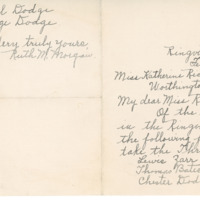 l Dodge
ge Dodge
Very truly yours,
Ruth M. Morgan
Ringvo
Miss Katherine
Worthingto
My dear Miss R
Of the
is the Ringv
the following
take the
Lewis Zarr
Thomas Bates
Chester Dod